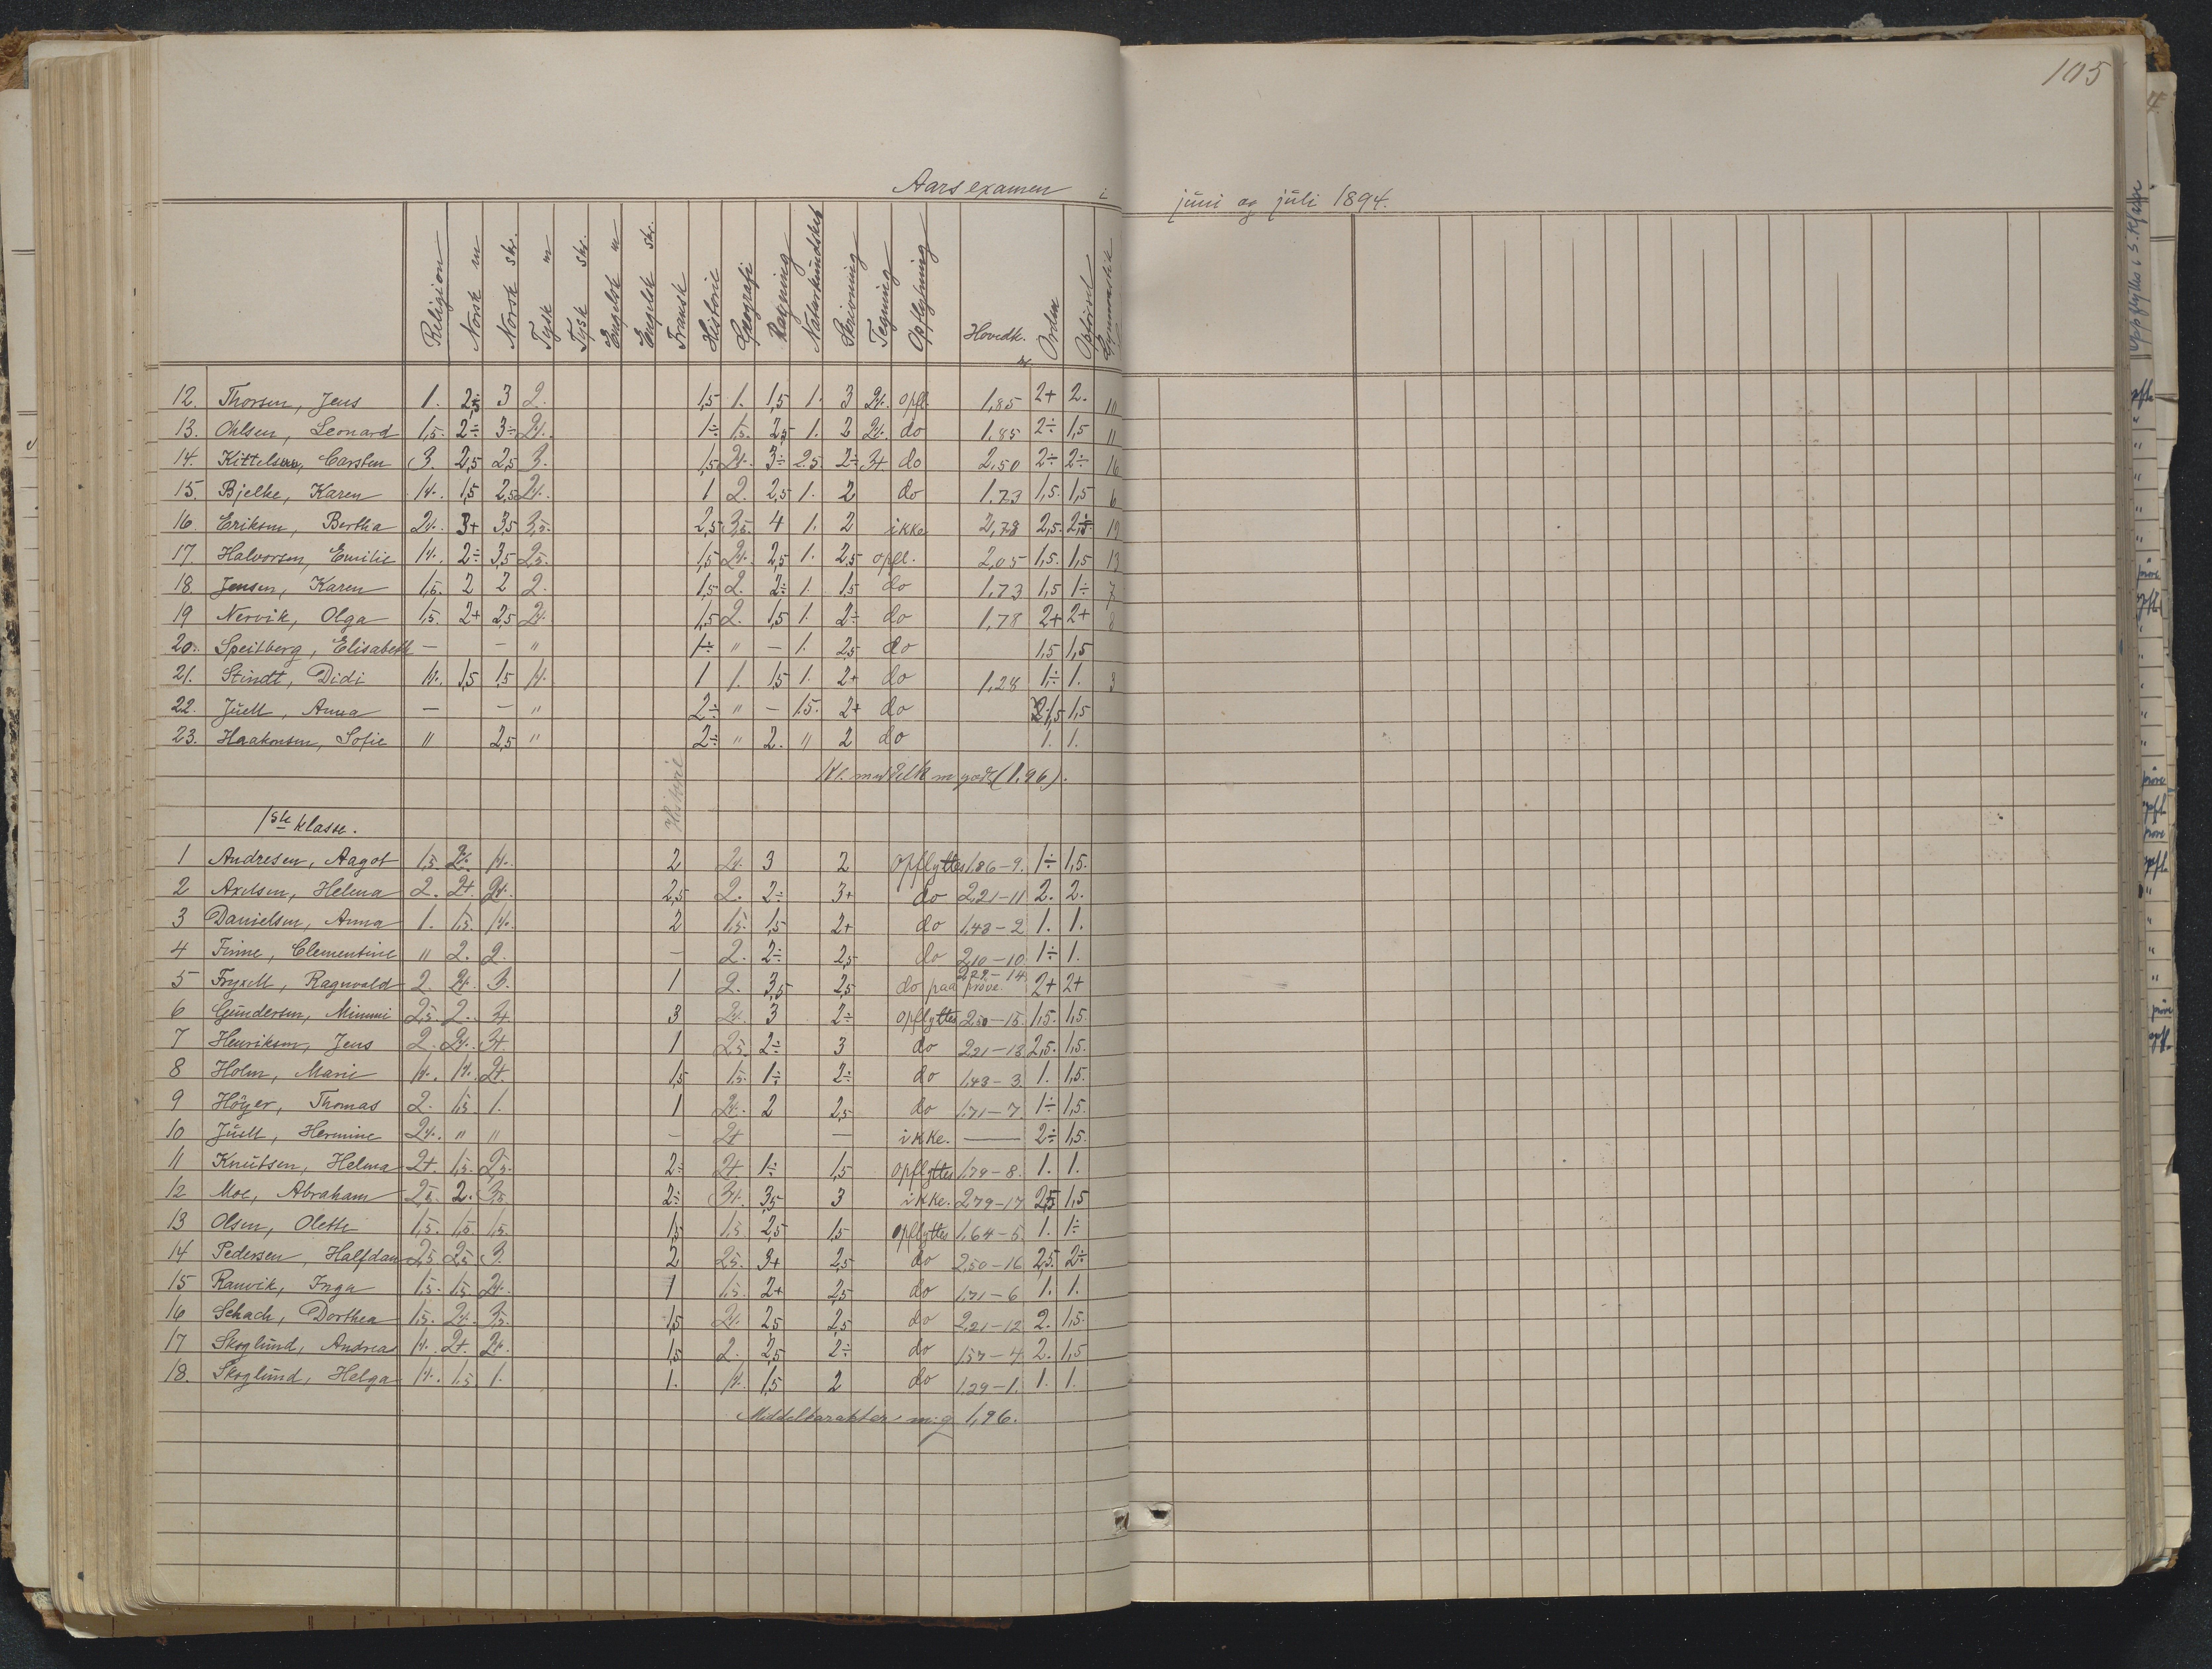 105
Aarsexamen i juni og juli 1894.
Religion Norsk m Norsk skr. Tysk m Tysk skr. Engelsk m Engelsk skr. Fransk Historie Geografi Regning Naturkundskab Skrivning Tegning Opflytning Hovedk. Orden Opførsel
12. Thorsen, Jens 1. 2,5 3 2. 1,5 1. 1,5 1. 3 2%. opfl. 1,85 2+ 2. 10
13. Ohlsen, Leonard 1,5. 2÷ 3÷ 2%. 1÷ 1,5. 2,5 1. 2 2%. do 1.85 2÷ 1,5 11
14. Kittelsen, Carsten 3. 2,5 2,5 3. 1,5 2%. 3÷ 2.5. 2÷ 3+ do 2.50 2÷ 2÷ 16
15. Bjelke, Karen 1%. 1,5 2,5 2%. 1 2. 2,5 1. 2 do 1.73 1,5. 1,5 6
16. Eriksen, Bertha 2%. 3+ 3,5 3,5. 2,5 3,5. 4 1. 2 ikke 2,78 2,5. 19
17. Halvorsen, Emilie 1%. 2÷ 3,5 2,5. 1,5 2%. 2,5 1. 2,5 opfl. 2,05 1,5. 1,5 13
18. Jensen, Karen 1,5. 2 2 2. 1,5 2. 2÷ 1. 1,5 do 1.73 1,5 1÷ 7
19 Nervik, Olga 1,5. 2+ 2,5 2%. 1,5 2. 1,5 1. 2÷ do 1,78 2+ 2+ 8
20. Speilberg, Elisabeth — — " 1÷ " — 1. 2,5 do 1,5 1,5
21. Stindt, Didi 1%. 1,5 1,5 1%. 1 1. 1,5 1. 2+ do 1,28 1÷ 1. 3
22. Juell, Anna — — " 2÷ " — 1.5. 2+ do 1,5 1,5
23. Haakonsen, Sofie " 2,5 " 2÷ " 2. " 2 do 1. 1.
Kl. middelk m godt (1.96).
Historie
1ste klasse.
1 Andresen, Aagot 1,5. 2%. 1%. 2 2%. 3 2 opflyttes 1.86–9. 1÷ 1,5.
2 Axelsen, Helena 2. 2+. 2%. 2,5 2. 2÷ 3+ do 2,21–11 2. 2.
3 Danielsen, Anna 1. 1,5. 1%. 2 1,5. 1,5 2+ do 1,43–2 1. 1.
4 Finne, Clementine " 2. 2. — 2. 2÷ 2,5 do 2,10–10 1÷ 1.
5 Fryxell, Ragnvald 2. 2%. 3. 1 2. 3,5 2,5 do paa prøve 2,29–14 2+ 2+
6 Gundersen, Mimmi 2,5. 2. 3+ 3 2%. 3 2÷ opflyttes 2,50–15. 1,5. 1,5.
7 Henriksen, Jens 2. 2%. 3+ 1 2,5. 2÷ 3 do 2,21–13 2,5. 1,5.
8 Holm, Marie 1%. 1%. 2+. 1,5 1,5. 1÷ 2÷ do 1,43–3 1. 1,5.
9 Höyer, Thomas 2. 1,5 1. 1 2%. 2 2,5 do 1,71–7 1÷ 1,5.
10 Juell, Hermine 2%. " " — 2+ — ikke. — 2÷ 1,5.
11 Knutsen, Helma 2+. 1,5. 2,5. 2÷ 2+ 1÷ 1,5 opflyttes 1.79–8. 1. 1.
12 Moe, Abraham 2,5. 2. 3,5. 2÷ 3+. 3,5 3 ikke. 2,79–17 2,5 1,5
13 Olsen, Olette 1,5. 1,5. 1,5. 1,5 1,5. 2,5 1,5 opflyttes 1,64–5. 1. 1÷
14 Pedersen, Halfdan 2,5 2,5 3. 2 2,5. 3+ 2,5 do 2,50–16 2,5. 2÷
15 Ranvik, Inga 1,5. 1,5 2%. 1 1,5. 2+ 2,5 do 1,71–6 1. 1.
16 Schach, Dorthea 1,5. 2%. 3,5. 1,5 2%. 2,5 2,5 do 2,21–12 2. 1,5.
17 Skoglund, Andreas 1%. 2+. 2%. 1,5 2. 2,5 2÷ do 1,57–4. 2. 1,5
18. Skoglund, Helga 1%. 1,5. 1. 1. 1%. 1,5 2 do 1,29–1. 1. 1.
Middelkarakter m.g 1,96.